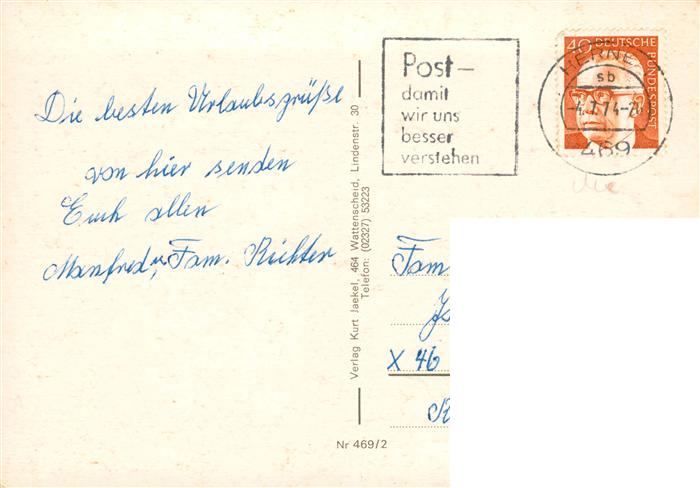 Die besten Urlaubsgrüße
von hier senden
Euch allen
Manfred u. Fam. Richter
Verlag Kurt Jaekel, 464 Wattenscheid, Lindenstr. 30
Telefon: (02327) 53223
Nr 469/2
Post –
damit
wir uns
besser
verstehen
40 DEUTSCHE BUNDESPOST
HERNE
sb
469
Fam
X 46